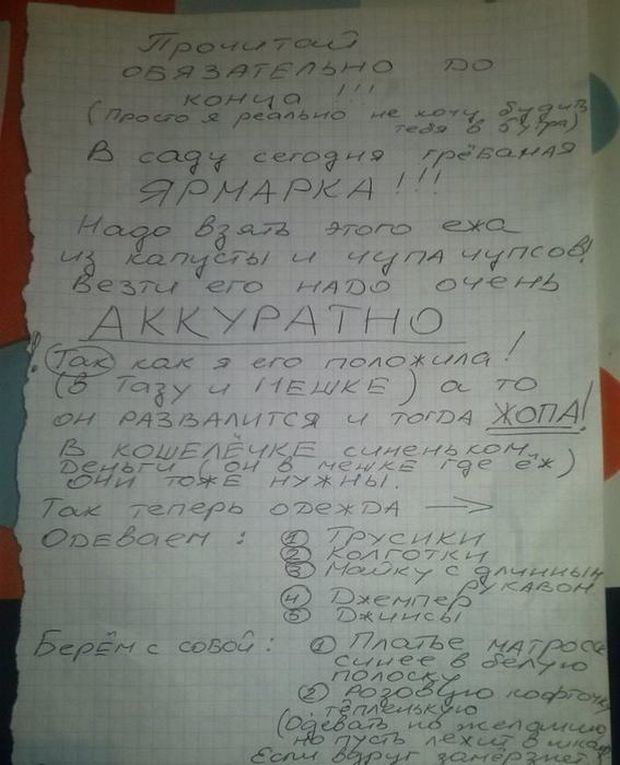 Прочитай
ОБЯЗАТЕЛЬНО ДО
КОНЦА !!!
(Просто я реально не хочу будить
тебя в 6 утра)
В саду сегодня грёбаная
ЯРМАРКА!!!
Надо взять этого ежа
из капусты и чупа чупсов!
Везти его НАДО очень
АККУРАТНО
! Так как я его положила!
(В ТАЗУ И МЕШКЕ) а то
ОН РАЗВАЛИТСЯ И ТОГДА ЖОПА!
В КОШЕЛЁЧКЕ СИНЕНЬКОМ
Деньги (он в мешке где ёж)
ОНИ ТОЖЕ НУЖНЫ.
Так теперь одежда →
ОДЕВАЕМ : ① ТРУСИКИ
② КОЛГОТКИ
③ Майку с длинным
рукавом
④ Джемпер
⑤ Джинсы
Берём с собой: ① Платье матроса
синее в белую
полоску
② розовую кофточку
тёпленькую
(Одевать по желанию
но пусть лежит в шкафу
Если вдруг замёрзнет)